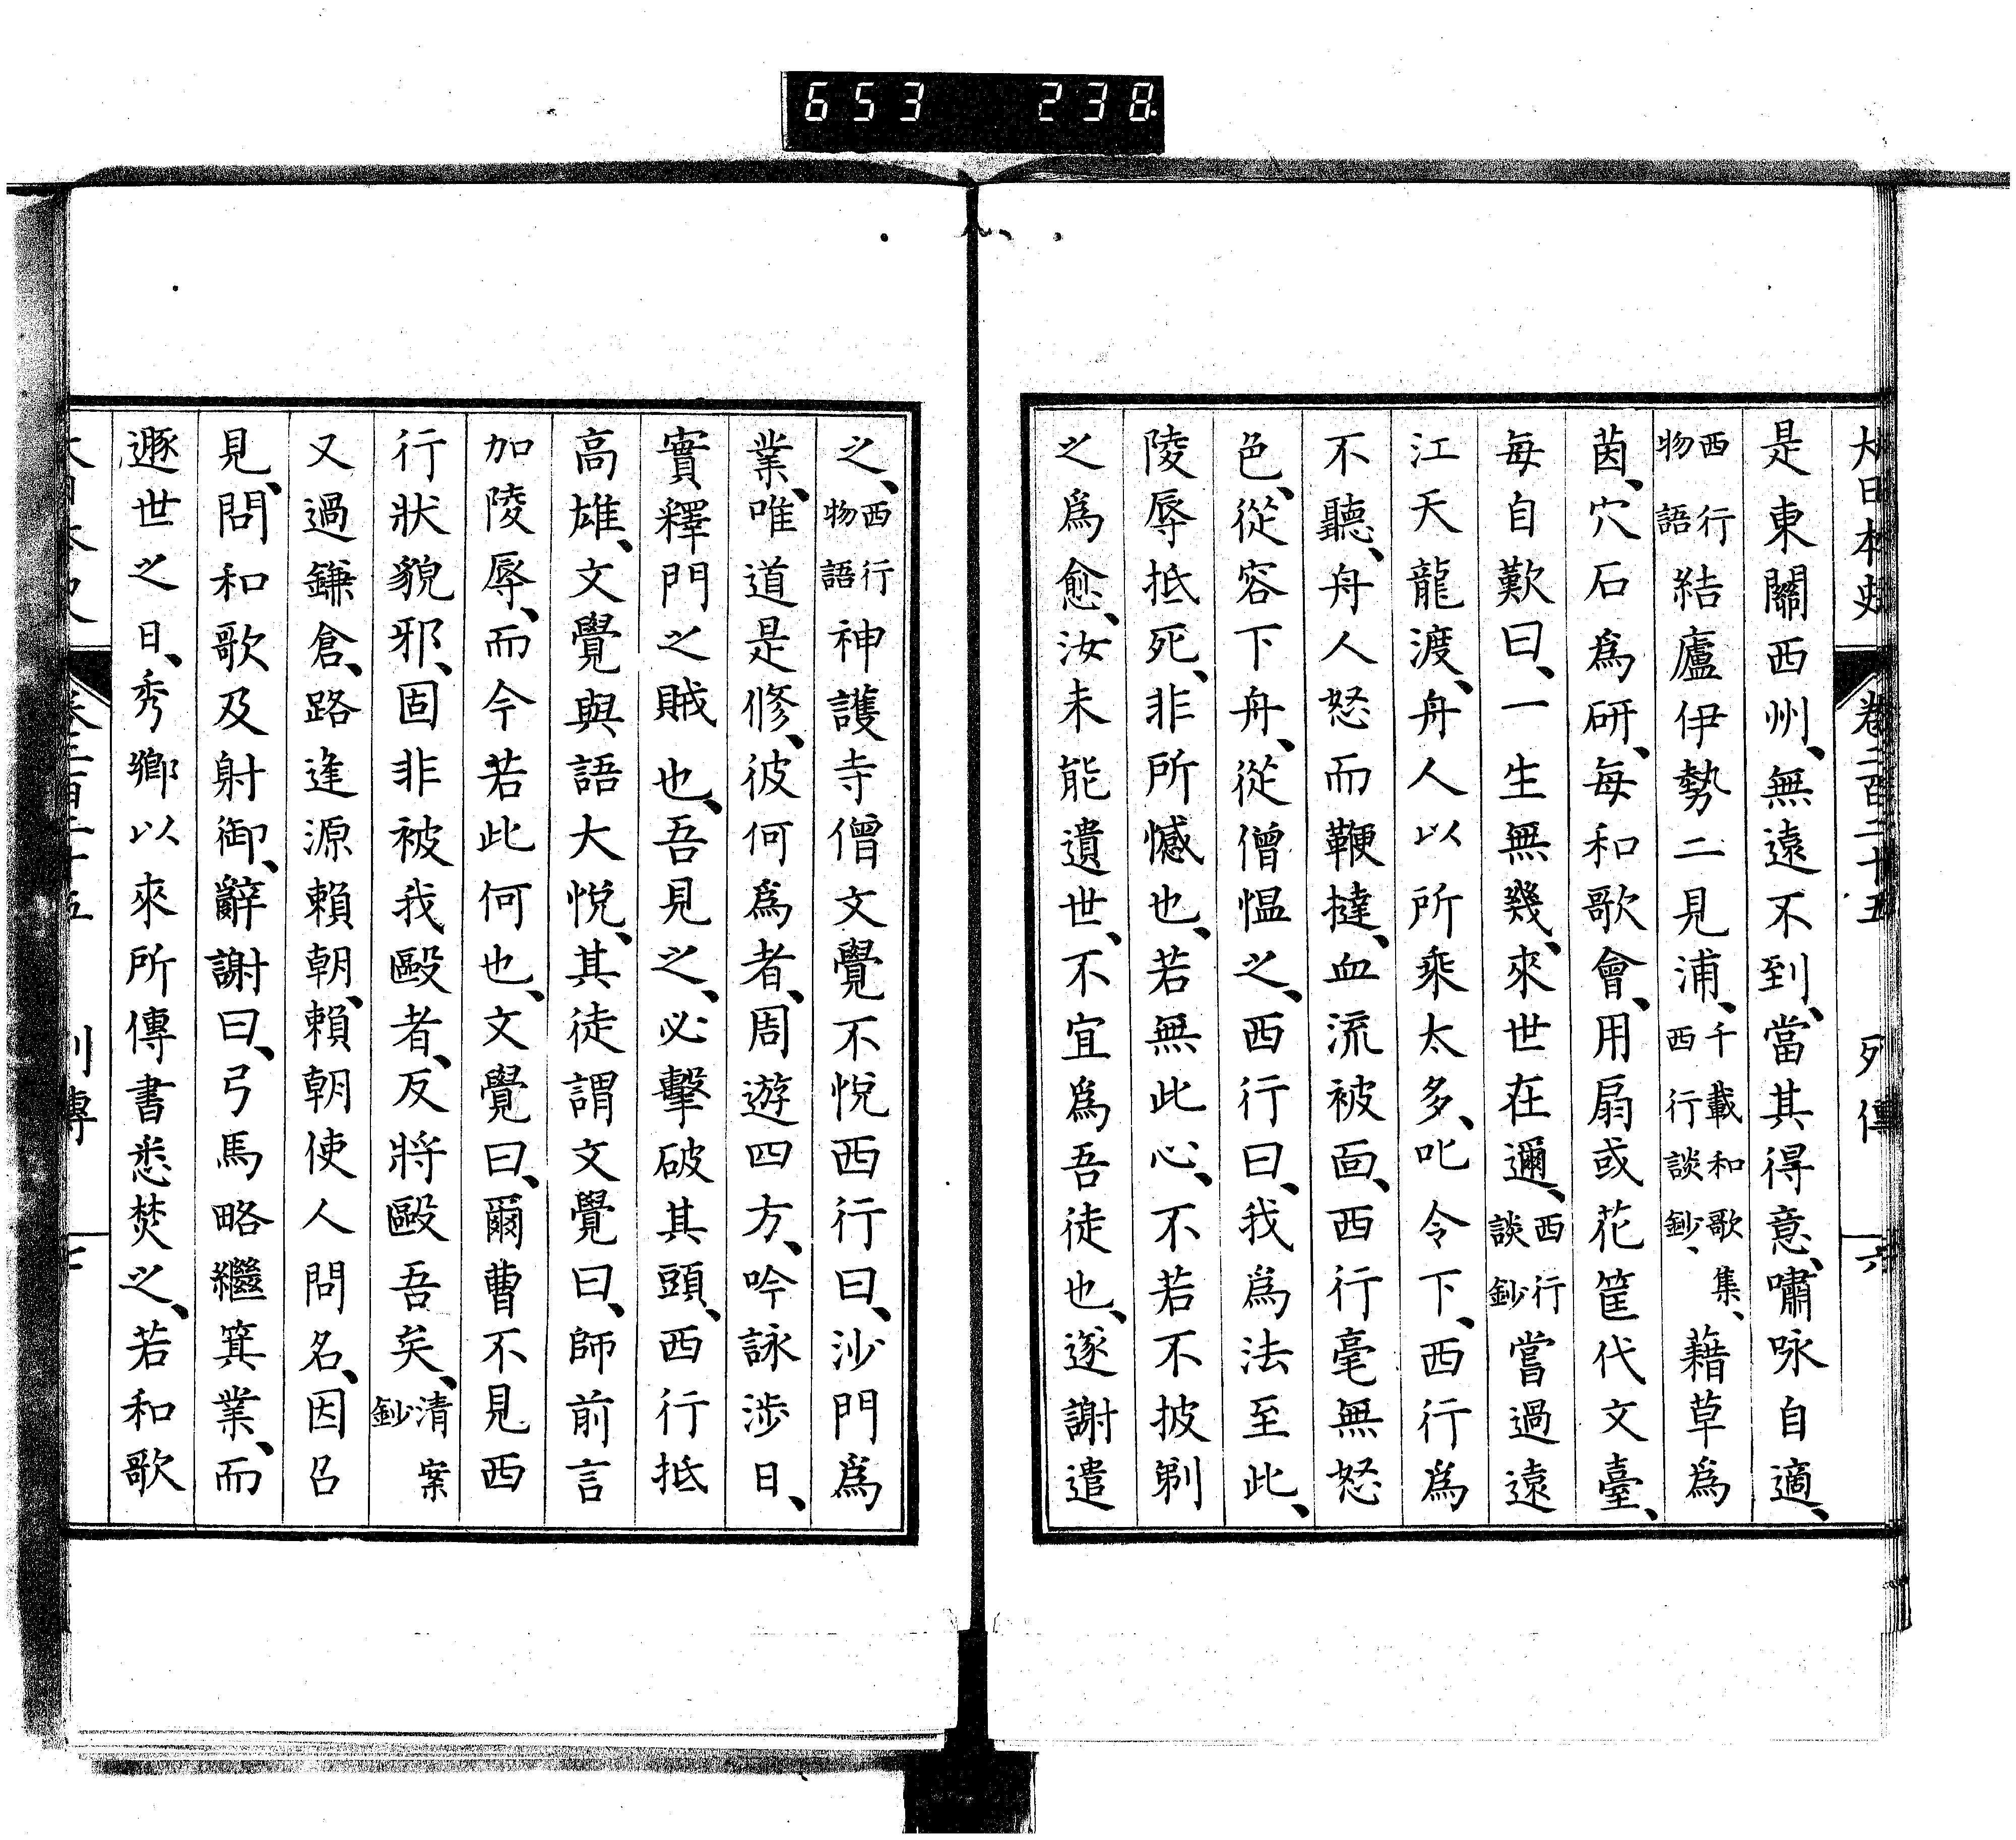 653 238
大日本史 卷二百二十五 列傳 六
是東關西州、無遠不到、當其得意、嘯咏自適、
西行物語結廬伊勢二見浦、千載和歌集、西行談鈔、藉草為
茵、穴石爲研、每和歌會、用扇或花筐代文臺、
每自歎曰、一生無幾、來世在邇、西行談鈔嘗過遠
江天龍渡、舟人以所乘太多、叱令下、西行爲
不聽、舟人怒而鞭撻、血流被面、西行毫無怒
色、從容下舟、從僧愠之、西行曰、我爲法至此、
陵辱抵死、非所憾也、若無此心、不若不披剃
之爲愈、汝未能遺世、不宜爲吾徒也、遂謝遣
之、西行物語神護寺僧文覺不悅西行曰、沙門爲
業、唯道是修、彼何爲者、周遊四方、吟詠涉日、
實釋門之賊也、吾見之、必擊破其頭、西行抵
高雄、文覺與語大悅、其徒謂文覺曰、師前言
加陵辱、而今若此何也、文覺曰、爾曹不見西
行狀貌邪、固非被我毆者、反將毆吾矣、清案鈔
又過鎌倉、路逢源賴朝、賴朝使人問名、因召
見、問和歌及射御、辭謝曰、弓馬略繼箕業、而
遯世之日、秀鄉以來所傳書悉焚之、若和歌